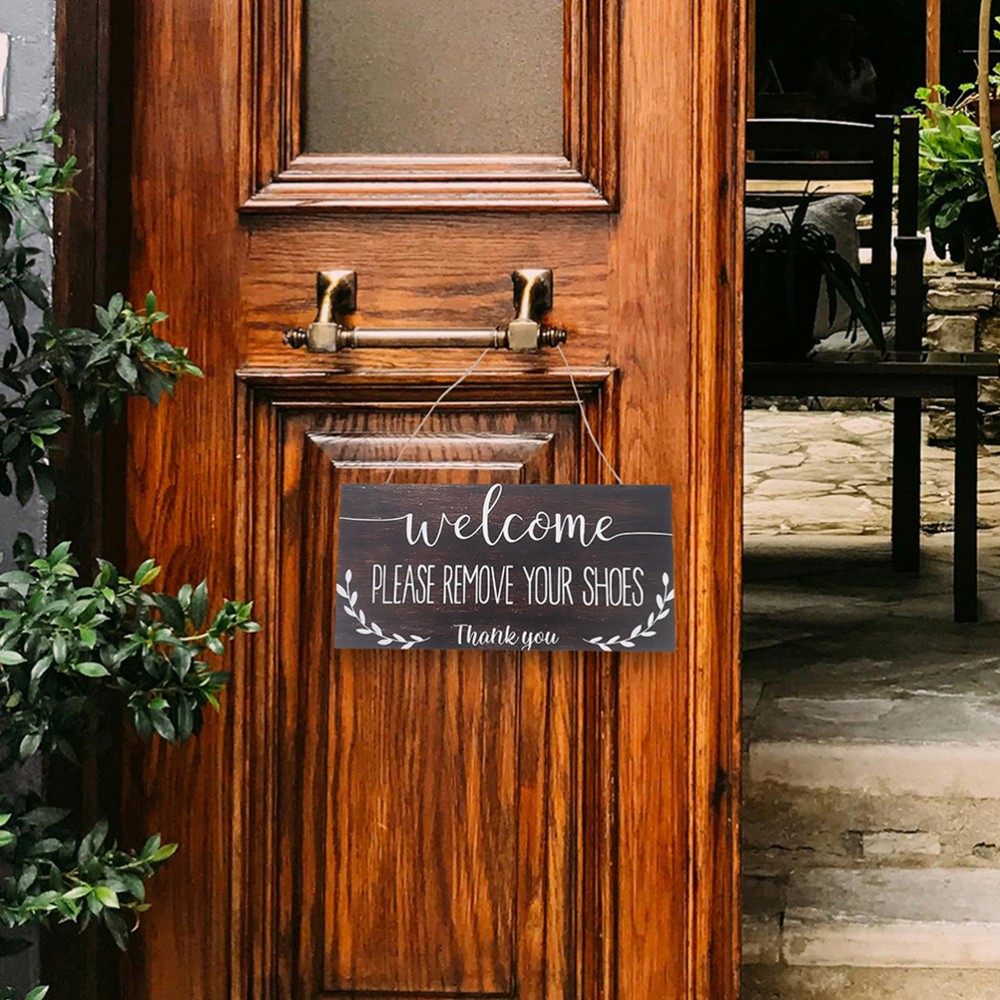 welcome
PLEASE REMOVE YOUR SHOES
Thank you